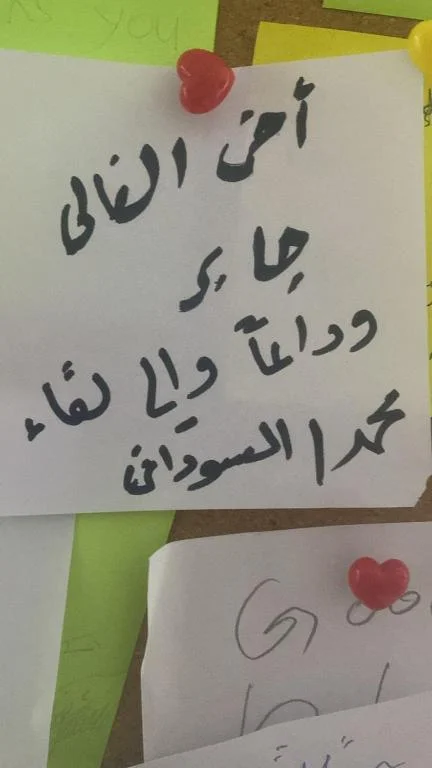 YOU
أخي الغالي
جابر
وداعاً والى لقاء
محمد السوداني
Goo